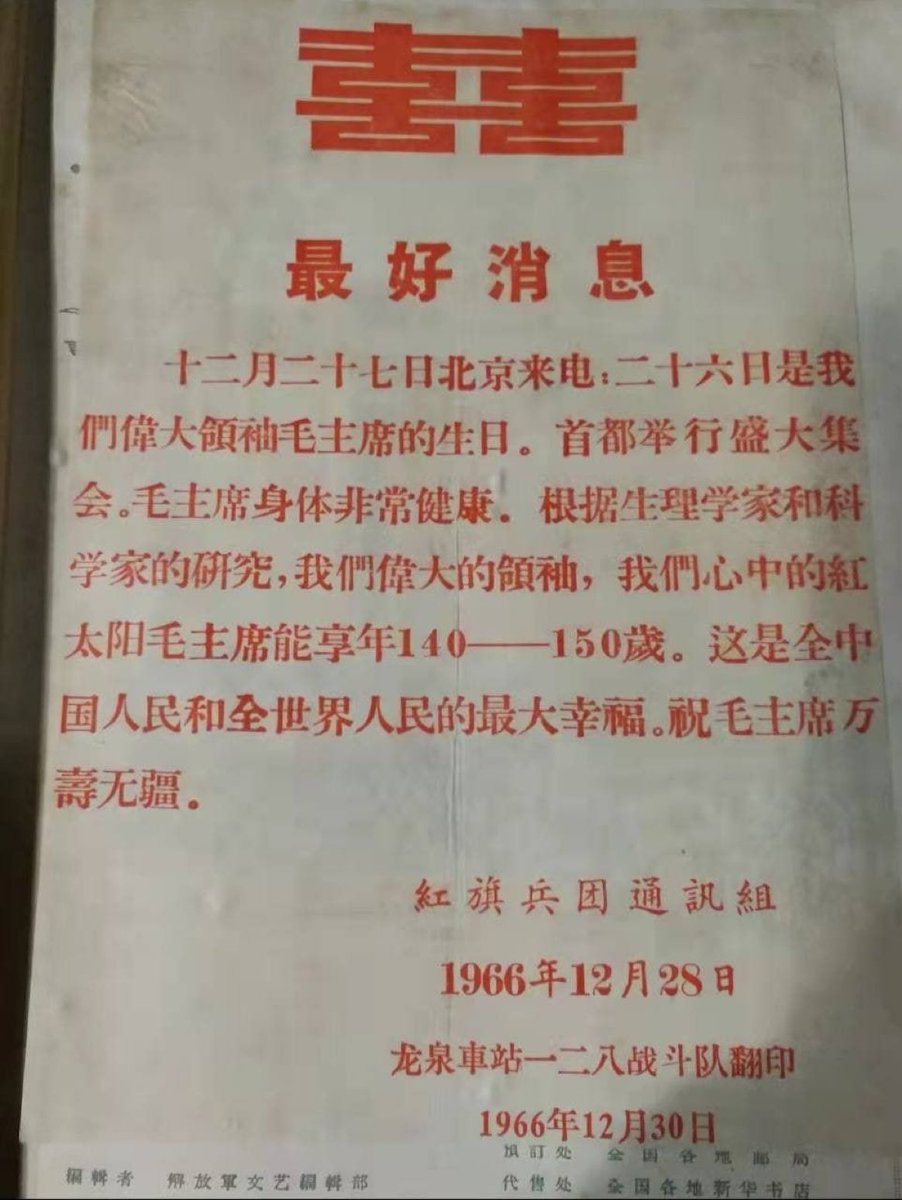 囍
最好消息
十二月二十七日北京来电：二十六日是我
們偉大領袖毛主席的生日。首都举行盛大集
会。毛主席身体非常健康。根据生理学家和科
学家的研究，我們偉大的領袖，我們心中的紅
太阳毛主席能享年140——150歲。这是全中
国人民和全世界人民的最大幸福。祝毛主席万
壽无疆。
紅旗兵团通訊組
1966年12月28日
龙泉車站一二八战斗队翻印
1966年12月30日
預訂处 全国各地邮局
編輯者 解放軍文艺編輯部
代售处 全国各地新华书店